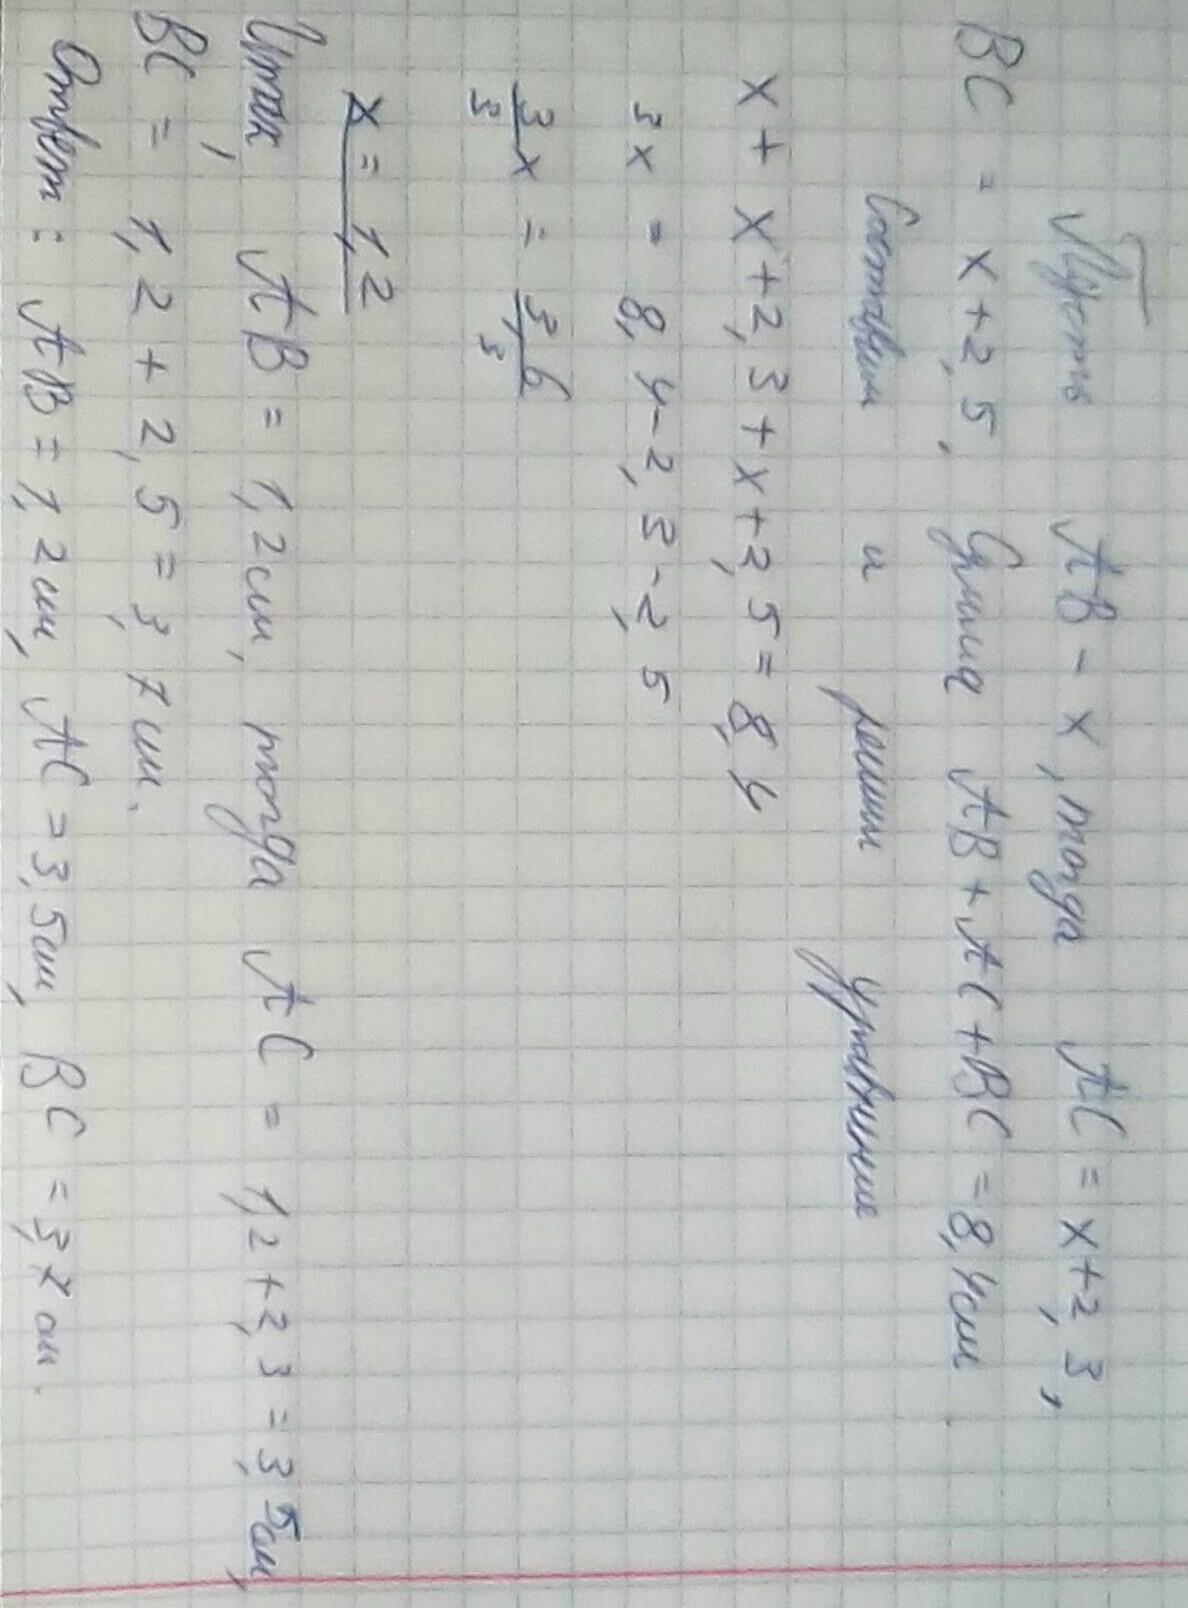 Пусть AB - x, тогда AC = x+2,3,
BC = x+2,5. Сумма AB+AC+BC = 8,4см.
Составим и решим уравнение
x + x+2,3+x+2,5=8,4
3x = 8,4-2,3-2,5
3/3 x = 3,6/3
x = 1,2
Итак, AB = 1,2см, тогда AC = 1,2+2,3=3,5см,
BC = 1,2+2,5=3,7см.
Ответ: AB=1,2см, AC=3,5см, BC=3,7см.